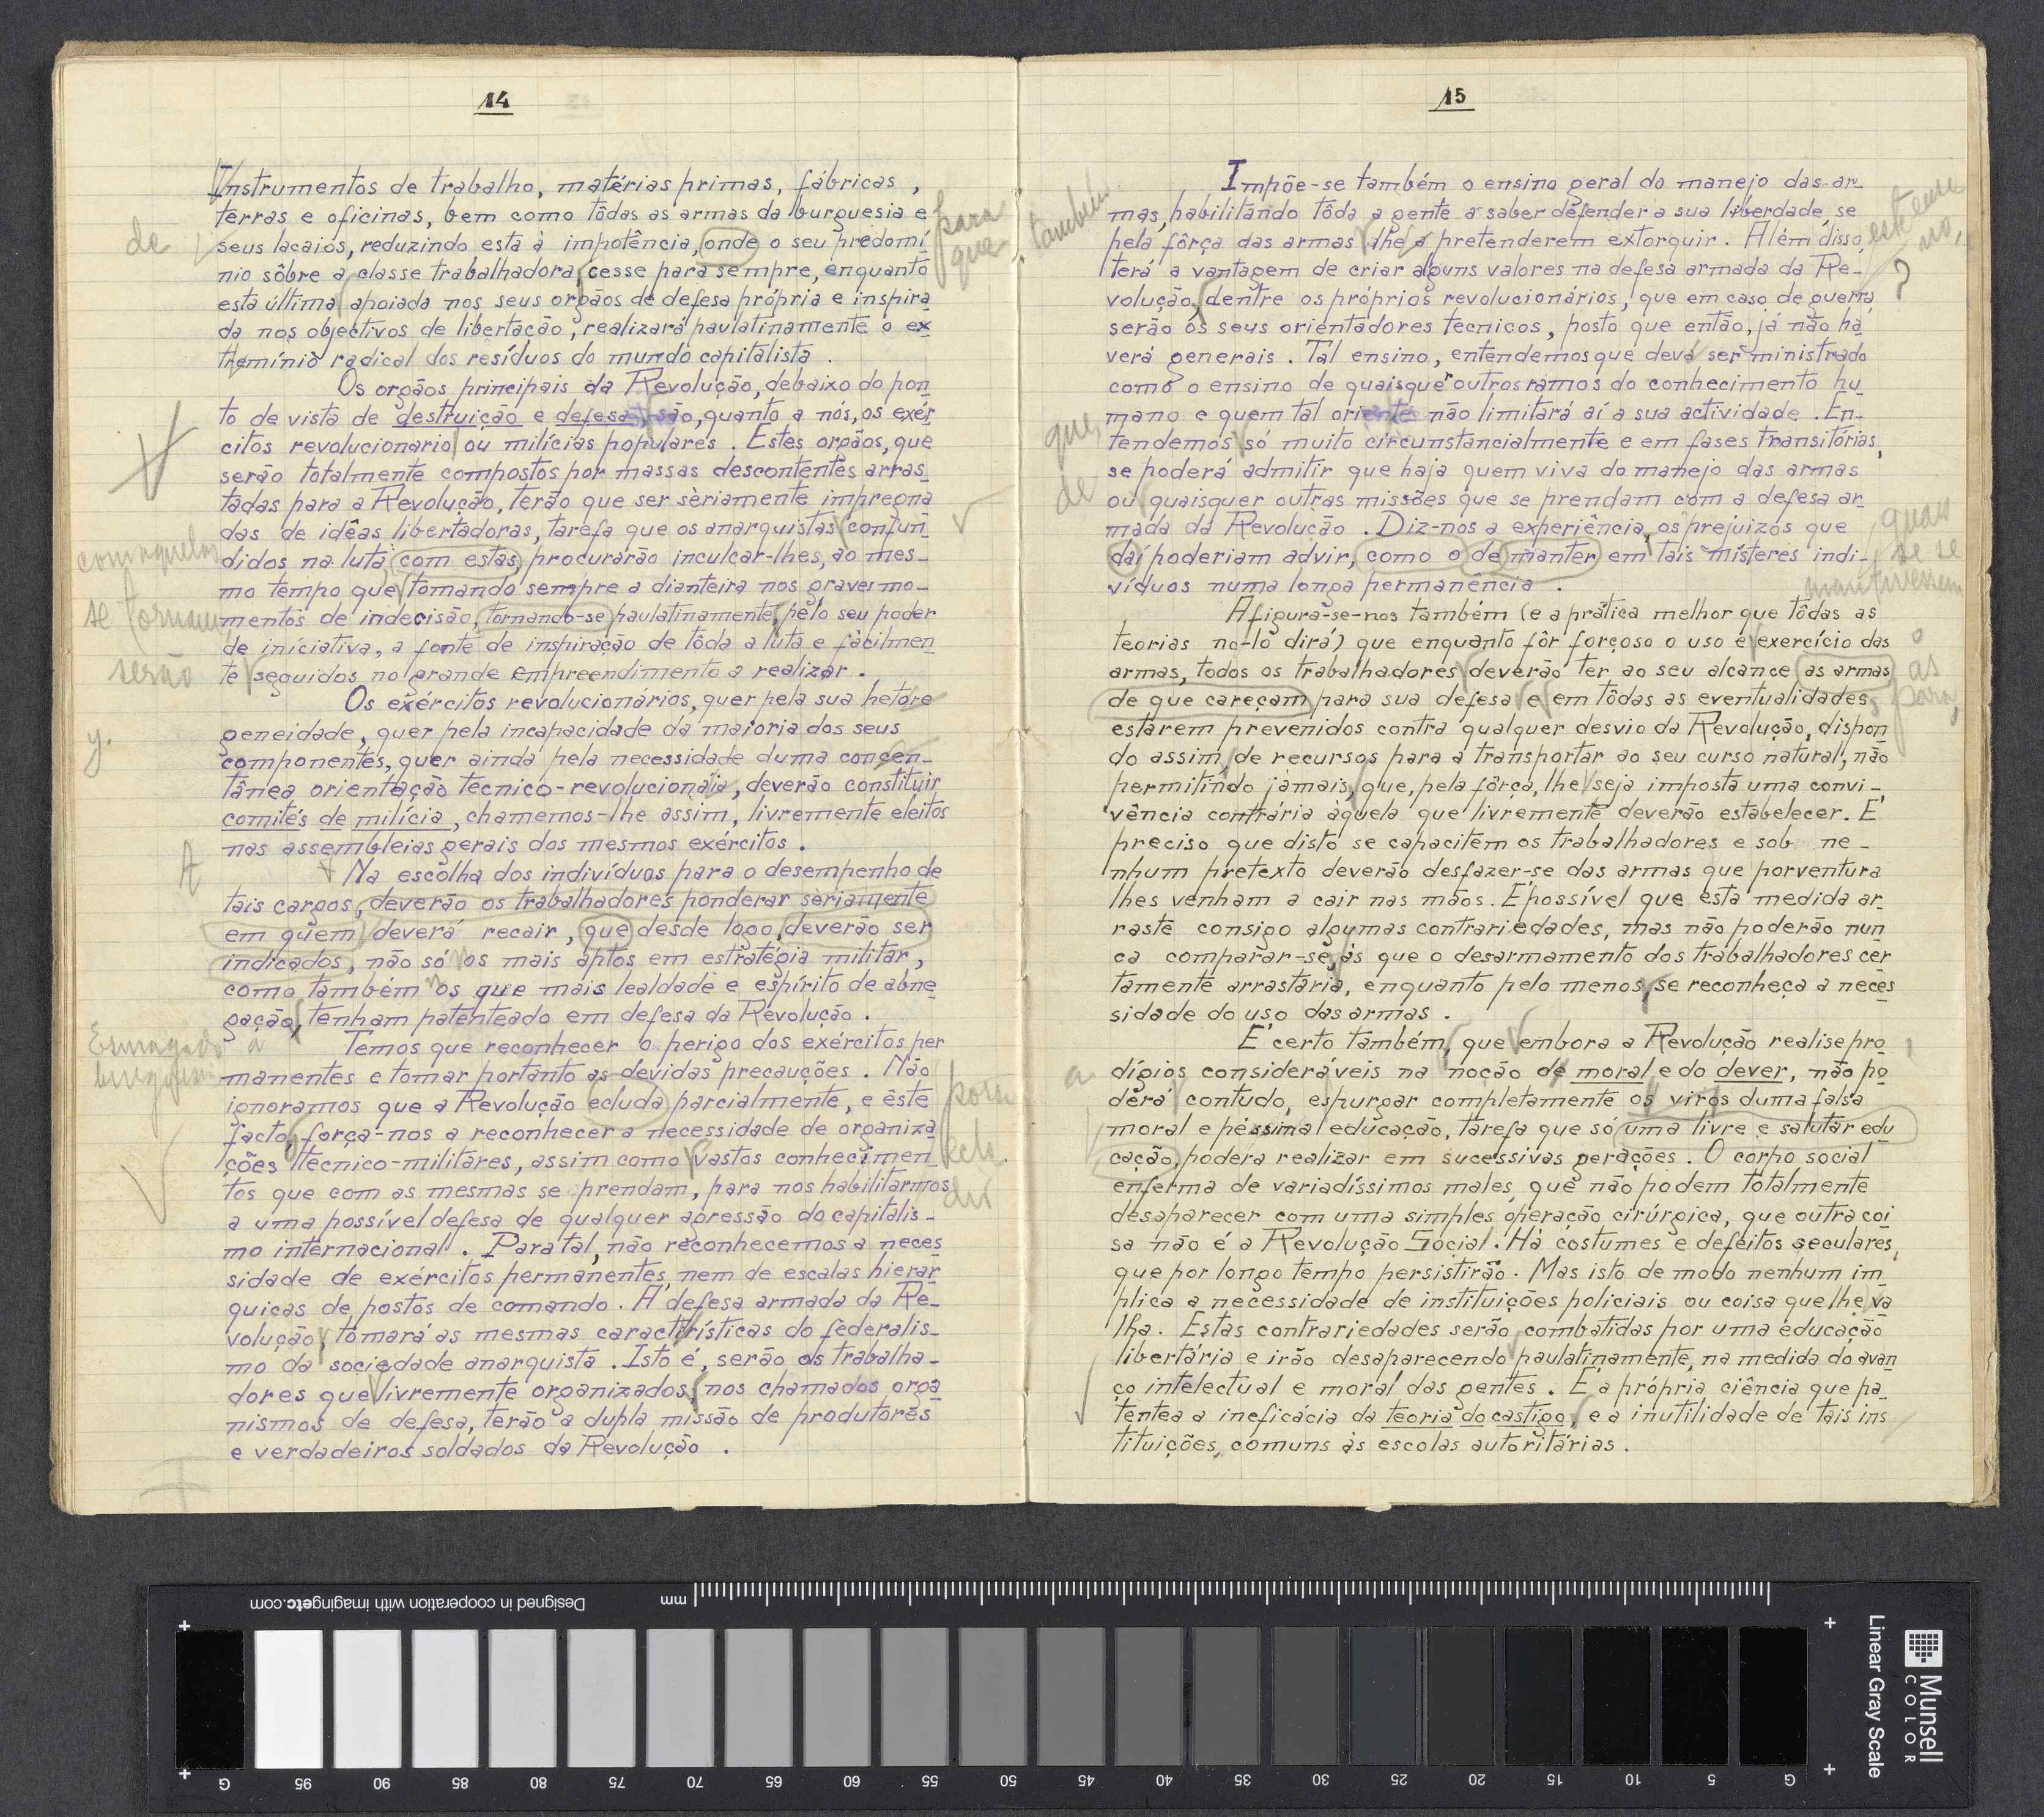 14
Instrumentos de trabalho, matérias primas, fábricas,
terras e oficinas, bem como tôdas as armas da burguesia e
seus lacaios, reduzindo esta à impotência, onde o seu predomí
nio sôbre a classe trabalhadora, cesse para sempre, enquanto
esta última, apoiada nos seus orgãos de defesa própria e inspira
da nos objectivos de libertação, realizará paulatinamente o ex
termínio radical dos resíduos do mundo capitalista.
Os orgãos principais da Revolução, debaixo do pon
to de vista de destruição e defesa, são, quanto a nós, os exér
citos revolucionario ou milícias populares. Estes orgãos, que
serão totalmente compostos por massas descontentes arras
tadas para a Revolução, terão que ser sèriamente impregna
das de idêas libertadoras, tarefa que os anarquistas confun
didos na luta com estas, procurarão inculcar-lhes, ao mes-
mo tempo que tomando sempre a dianteira nos graves mo-
mentos de indecisão, tornando-se paulatinamente, pelo seu poder
de iniciativa, a fonte de inspiração de tôda a luta e fàcilmen
te seguidos no grande empreendimento a realizar.
Os exércitos revolucionários, quer pela sua hetore
geneidade, quer pela incapacidade da maioria dos seus
componentes, quer ainda pela necessidade duma concen-
tânea orientação tecnico-revolucionaia, deverão constituir
comités de milícia, chamemos-lhe assim, livremente eleitos
nas assembleias gerais dos mesmos exércitos.
Na escolha dos indivíduos para o desempenho de
tais cargos, deverão os trabalhadores ponderar sèriamente
em quem deverá recair, que desde logo, deverão ser
indicados, não só os mais aptos em estratégia militar,
como também os que mais lealdade e espírito de abne
gação, tenham patenteado em defesa da Revolução.
Temos que reconhecer o perigo dos exércitos per
manentes e tomar portanto as devidas precauções. Não
ignoramos que a Revolução ecluda parcialmente, e êste
facto, força-nos a reconhecer a necessidade de organiza
ções tecnico-militares, assim como vastos conhecimen
tos que com as mesmas se prendam, para nos habilitarmos
a uma possível defesa de qualquer agressão do capitalis-
mo internacional. Para tal, não reconhecemos a neces
sidade de exércitos permanentes, nem de escalas hierar
quicas de postos de comando. A defesa armada da Re-
volução, tomará as mesmas características do federalis-
mo da sociedade anarquista. Isto é, serão os trabalha-
dores que livremente organizados, nos chamados orga
nismos de defesa, terão a dupla missão de produtores
e verdadeiros soldados da Revolução.
de
para
que
se tornam
serão
15
Impõe-se também o ensino geral do manejo das ar
mas, habilitando tôda a gente a saber defender a sua liberdade, se
pela fôrça das armas lhe a pretenderem extorquir. Além disso,
terá a vantagem de criar alguns valores na defesa armada da Re-
volução, dentre os próprios revolucionários, que em caso de guerra,
serão os seus orientadores tecnicos, posto que então, já não ha
verá generais. Tal ensino, entendemos que deva ser ministrado
como o ensino de quaisquer outros ramos do conhecimento hu
mano e quem tal oriente não limitará aí a sua actividade. En-
tendemos só muito circunstancialmente e em fases transitórias,
se poderá admitir que haja quem viva do manejo das armas
ou quaisquer outras missões que se prendam com a defesa ar
mada da Revolução. Diz-nos a experiência, os prejuizos que
daí poderiam advir, como o de manter em tais místeres indi-
víduos numa longa permanência.
Afigura-se-nos também (e a prática melhor que tôdas as
teorias no-lo dirá) que enquanto fôr forçoso o uso e exercício das
armas, todos os trabalhadores deverão ter ao seu alcance as armas
de que careçam para sua defesa e em tôdas as eventualidades,
estarem prevenidos contra qualquer desvio da Revolução, dispon
do assim, de recursos para a transportar ao seu curso natural, não
permitindo jàmais, que, pela fôrça, lhe seja imposta uma convi-
vência contrária àquela que livremente deverão estabelecer. É
preciso que disto se capacitem os trabalhadores e sob ne-
nhum pretexto deverão desfazer-se das armas que porventura
lhes venham a cair nas mãos. É possível que esta medida ar
raste consigo algumas contrariedades, mas não poderão nun
ca comparar-se, às que o desarmamento dos trabalhadores cer
tamente arrastaria, enquanto pelo menos, se reconheça a neces
sidade do uso das armas.
É certo também, que embora a Revolução realise pro
dígios consideráveis na noção de moral e do dever, não po
derá contudo, espurgar completamente os viros duma falsa
moral e péssima educação, tarefa que só uma livre e salutar edu
cação, poderá realizar em sucessivas gerações. O corpo social
enferma de variadíssimos males, que não podem totalmente
desaparecer com uma simples operação cirúrgica, que outra coi
sa não é a Revolução Social. Há costumes e defeitos seculares,
que por longo tempo persistirão. Mas isto de modo nenhum im
plica a necessidade de instituições policiais ou coisa que lhe va
lha. Estas contrariedades serão combatidas por uma educação
libertária e irão desaparecendo paulatinamente, na medida do avan
ço intelectual e moral das gentes. É a própria ciência que pa
tentea a ineficácia da teoria do castigo, e a inutilidade de tais ins
tituições, comuns às escolas autoritárias.
também
?
que,
de
quais
se se
mantivessem
o
as
para,
a
Designed in cooperation with imagingetc.com
mm
G 95 90 85 80 75 70 65 60 55 50 45 40 35 30 25 20 15 10 5 G
Munsell
COLOR
Linear Gray Scale